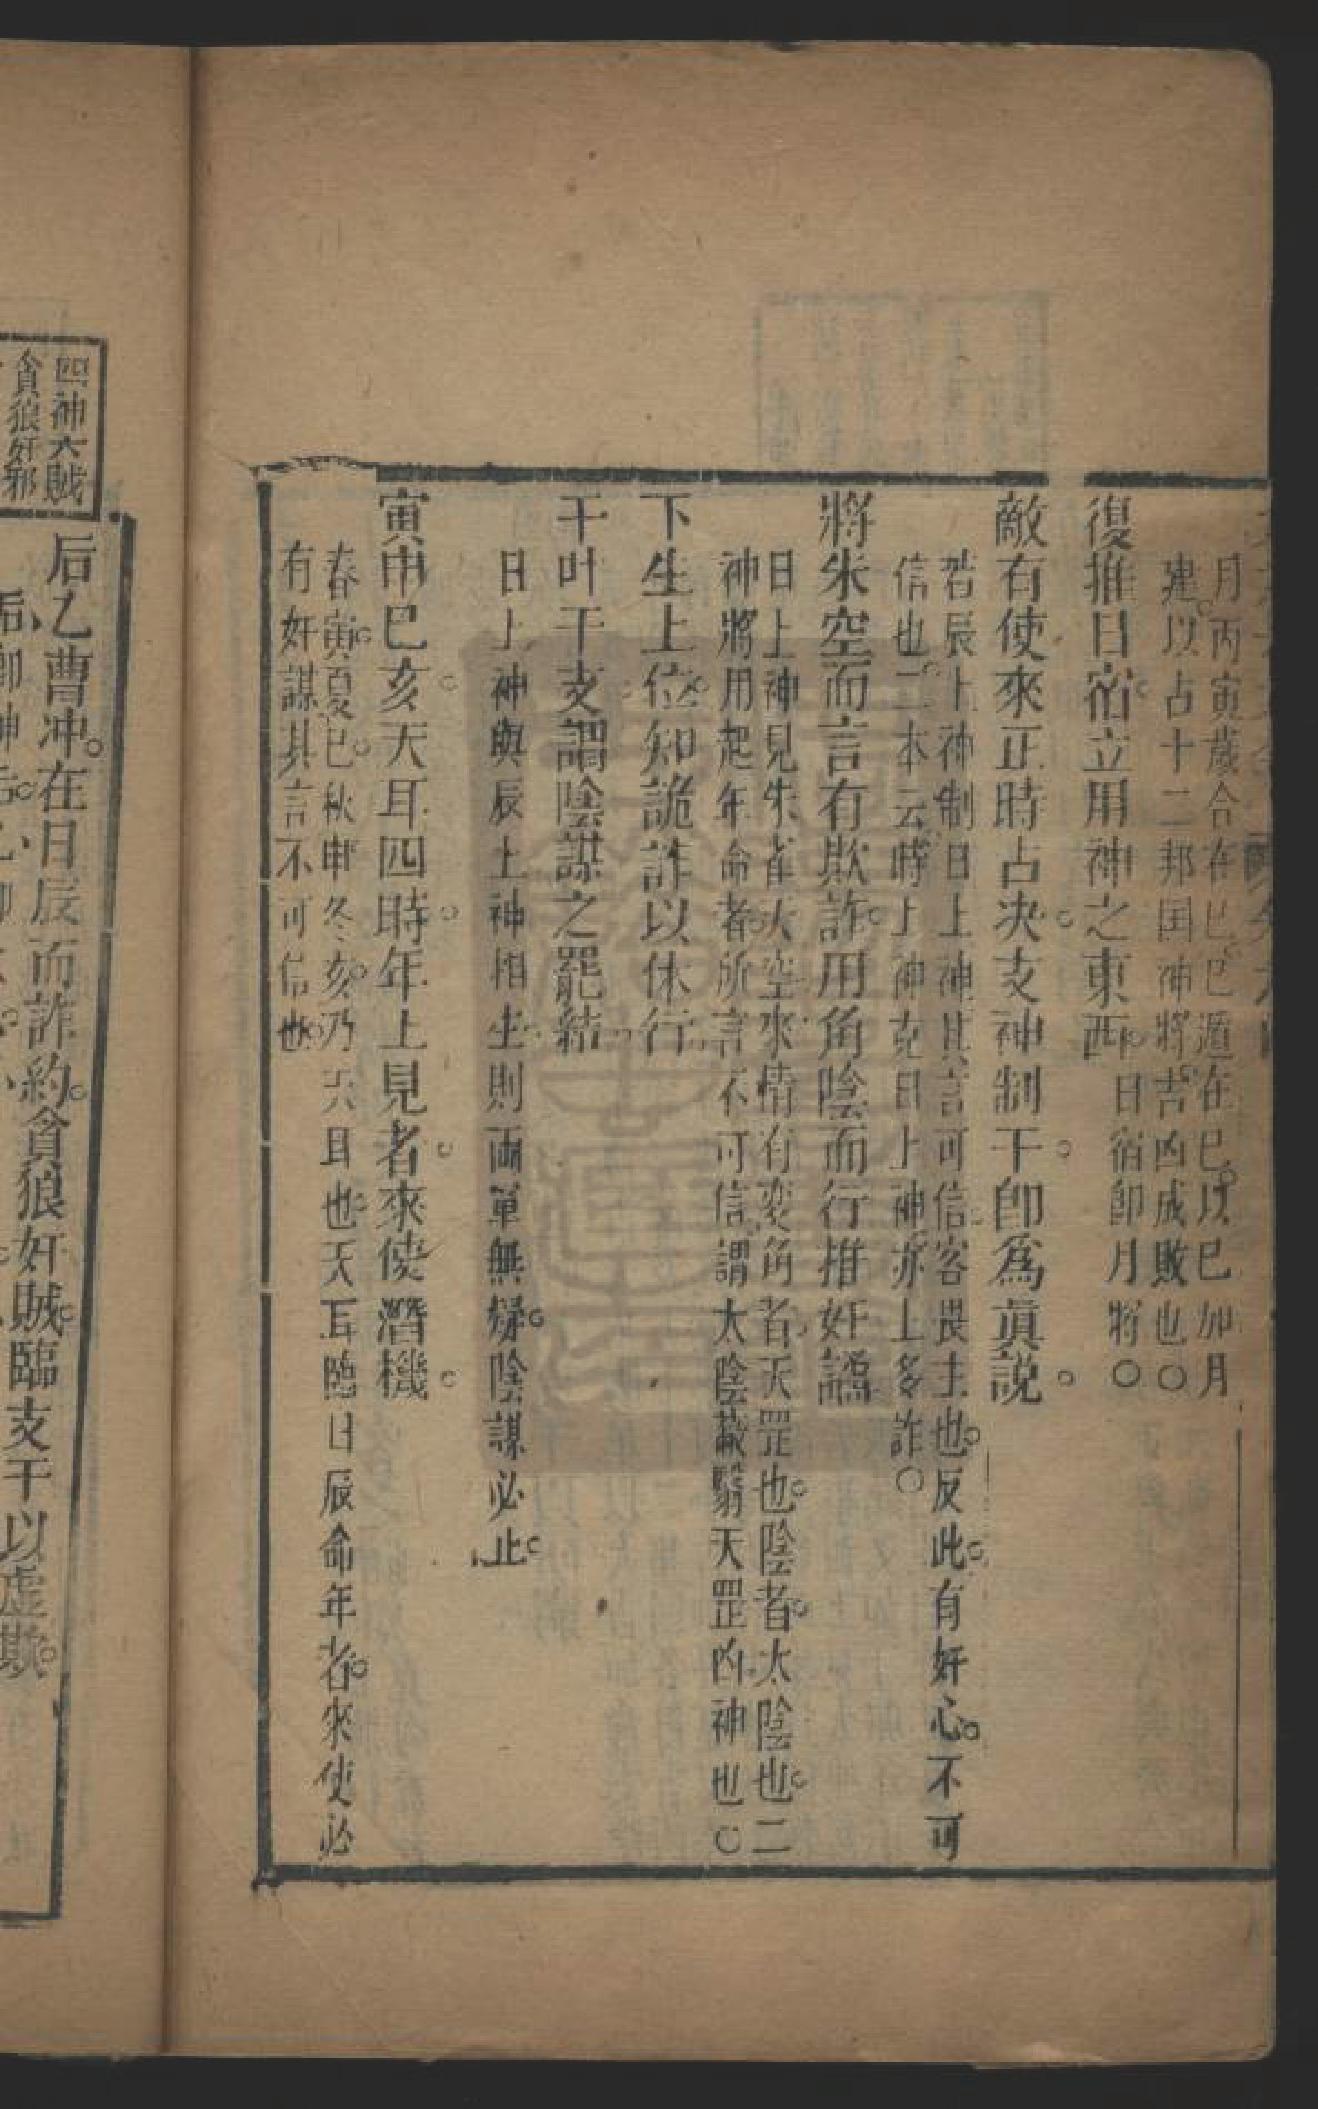 月丙寅歲合在巳巳遁在巳以巳加月
建以占十二邦国神將吉凶成敗也○
復推日宿立用神之東西日宿即月將○
敵有使來正時占决支神制干即爲眞説
若辰上神制日上神其言可信客畏主也反此有奸心不可
信也二本云時上神克日上神亦上多詐○
將朱空而言有欺詐用角陰而行推奸譌
日上神見朱雀天空來情有变角者天罡也陰者太陰也二
神將用起年命者所言不可信謂太陰蔽翳天罡凶神也○
下生上位知詭詐以休行
干叶干支謂陰謀之罷結
日上神與辰上神相生則両軍無疑陰謀必止
寅申巳亥天耳四時年上見者來使潛機
春寅夏巳秋申冬亥乃天耳也天耳臨日辰命年者來使必
有奸謀其言不可信也
四神六賊
貪狼奸邪
后乙曹冲在日辰而詐約貪狼奸賊臨支干以虛欺